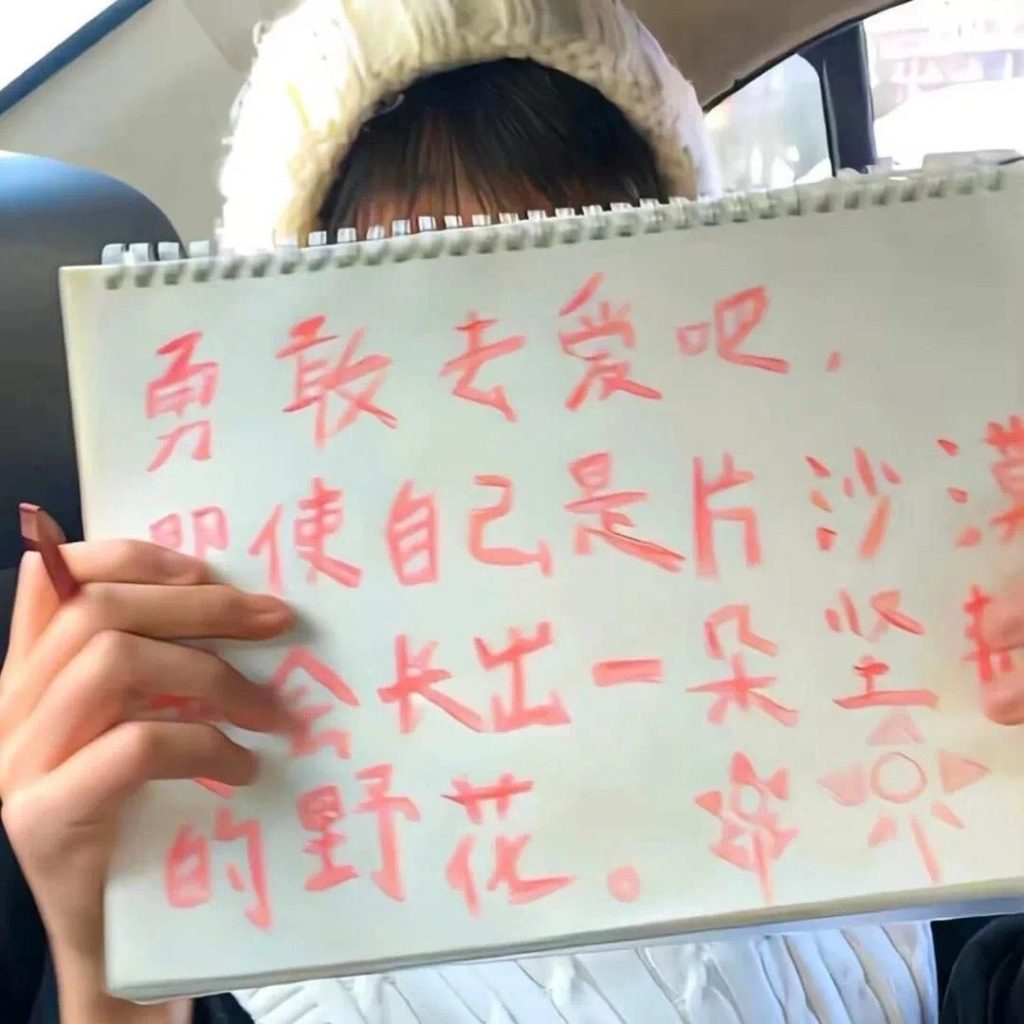 勇敢去爱吧，
即使自己是片沙漠
会长出一朵坚
的野花。